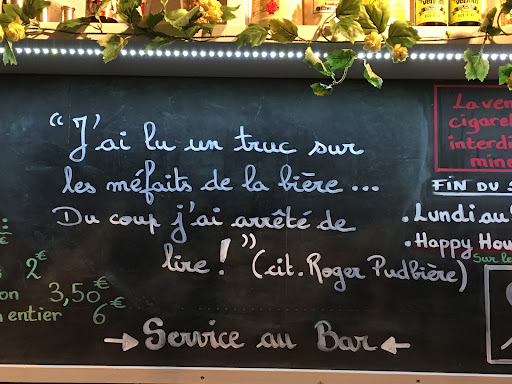 “J'ai lu un truc sur
les méfaits de la bière...
Du coup j'ai arrêté de
lire!” (cit. Roger Pudbière)
→ Service au Bar ←
2€
3,50€
entier 6€
La
FIN DU
• Lundi au
• Happy
Sur